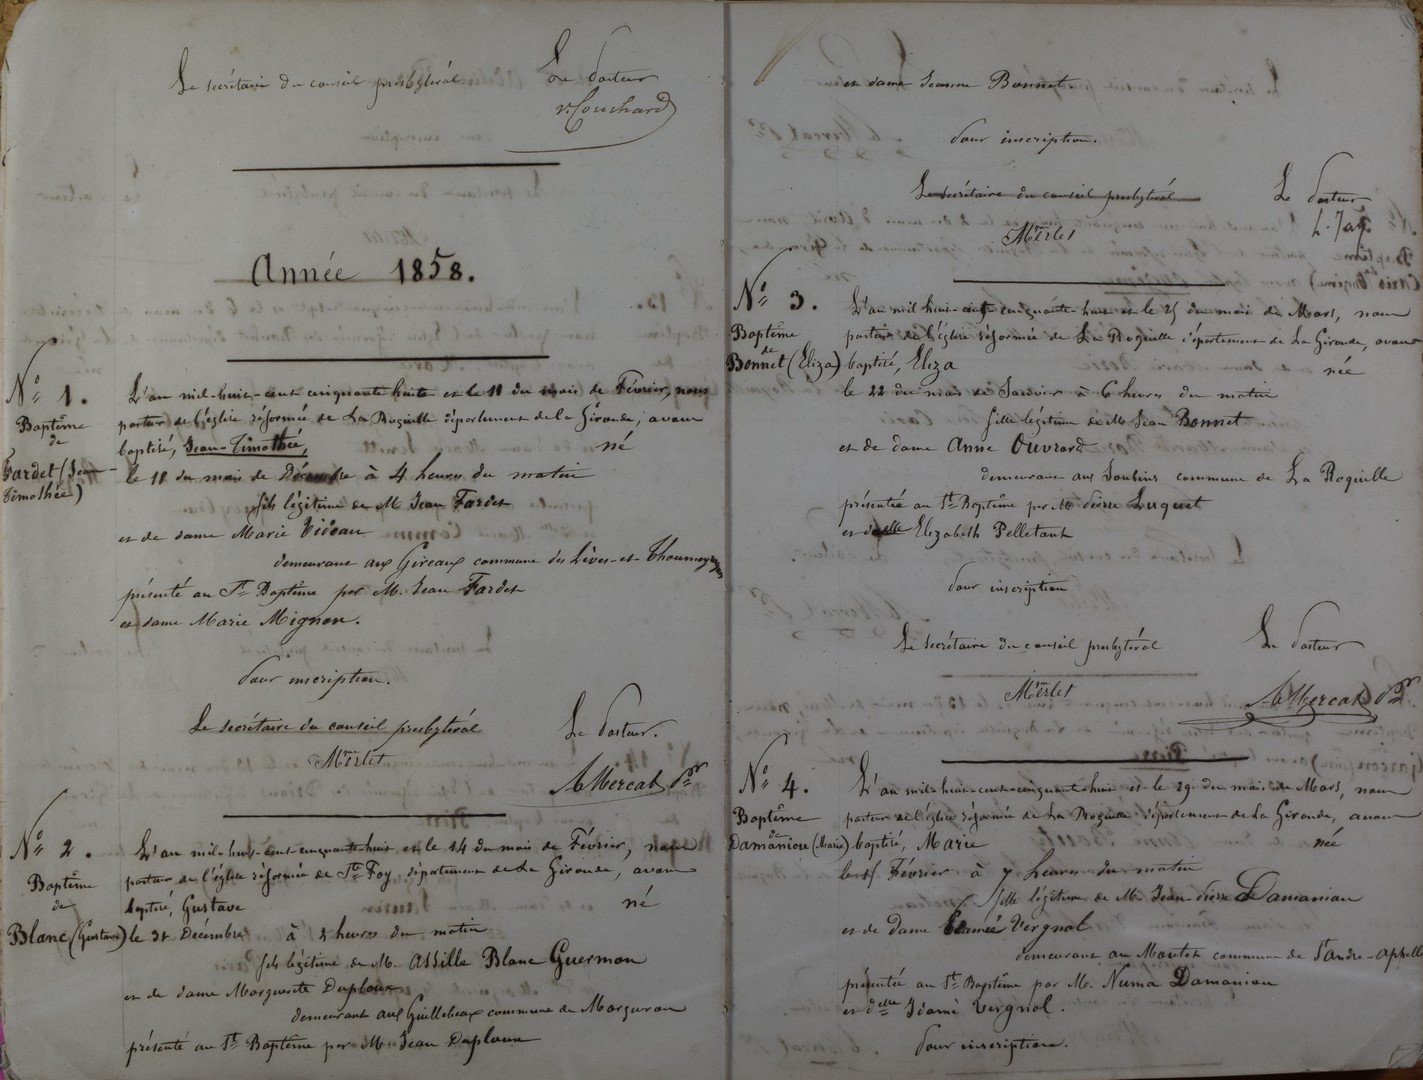 Le secrétaire du conseil presbytéral
Le Pasteur
V. Couchard
Année 1858.
N° 1.
Baptême
de
Fardet (Jean-
Timothée)
L'an mil-huit-cent cinquante huit et le 11 du mois de Février, nous
pasteur de l'église réformée de La Roquille département de la Gironde, avons
baptisé, Jean-Timothée,
né
le 11 du mois de Décembre à 4 heures du matin
fils légitime de M. Jean Fardet
et de dame Marie Videau
demeurant aux Gireaux commune des Lèves-et-Thoumeyragues
présenté au St Baptême par M. Jean Fardet
et dame Marie Mignon.
Pour inscription.
Le secrétaire du conseil presbytéral
Le Pasteur.
Merlet
A Mercat Pr
N° 2.
Baptême
de
Blanc (Gustave)
L'an mil-huit-cent cinquante huit et le 14 du mois de Février, nous
pasteur de l'église réformée de Ste Foy, département de La Gironde, avons
baptisé, Gustave
né
le 31 Décembre à 2 heures du matin
fils légitime de M. Assille Blanc Guermon
et de dame Marguerite Duploux
demeurant aux Guillebeaux commune de Margueron
présenté au St Baptême par M. Jean Duploux
et dame Jeanne Bonnet
Pour inscription.
Le secrétaire du conseil presbytéral
Le Pasteur
Merlet
L. Jay
N° 3.
Baptême
de
Bonnet (Eliza)
L'an mil huit-cent cinquante-huit et le 25 du mois de Mars, nous
pasteur de l'église réformée de La Roquille département de La Gironde, avons
baptisé, Eliza
née
le 22 du mois de Janvier à 6 heures du matin
fille légitime de M. Jean Bonnet
et de dame Anne Ouvrard
demeurant aux commune de La Roquille
présentée au St Baptême par M. Pierre Luquet
et delle Elizabeth Pelletant
Pour inscription
Le secrétaire du conseil presbytéral
Le Pasteur
Merlet
A Mercat Pr
N° 4.
Baptême
de
Damaniou (Marie)
L'an mil-huit-cent-cinquante-huit, et le 29 du mois de Mars, nous
pasteur de l'église réformée de La Roquille département de La Gironde, avons
baptisé, Marie
née
le 15 Février à 7 heures du matin
fille légitime de M. Jean-Pierre Damaniou
et de dame Vergnol
demeurant au Moutet commune de St André-Appelles
présentée au St Baptême par M. Numa Damaniou
et delle Idamé Vergnol.
Pour inscription.